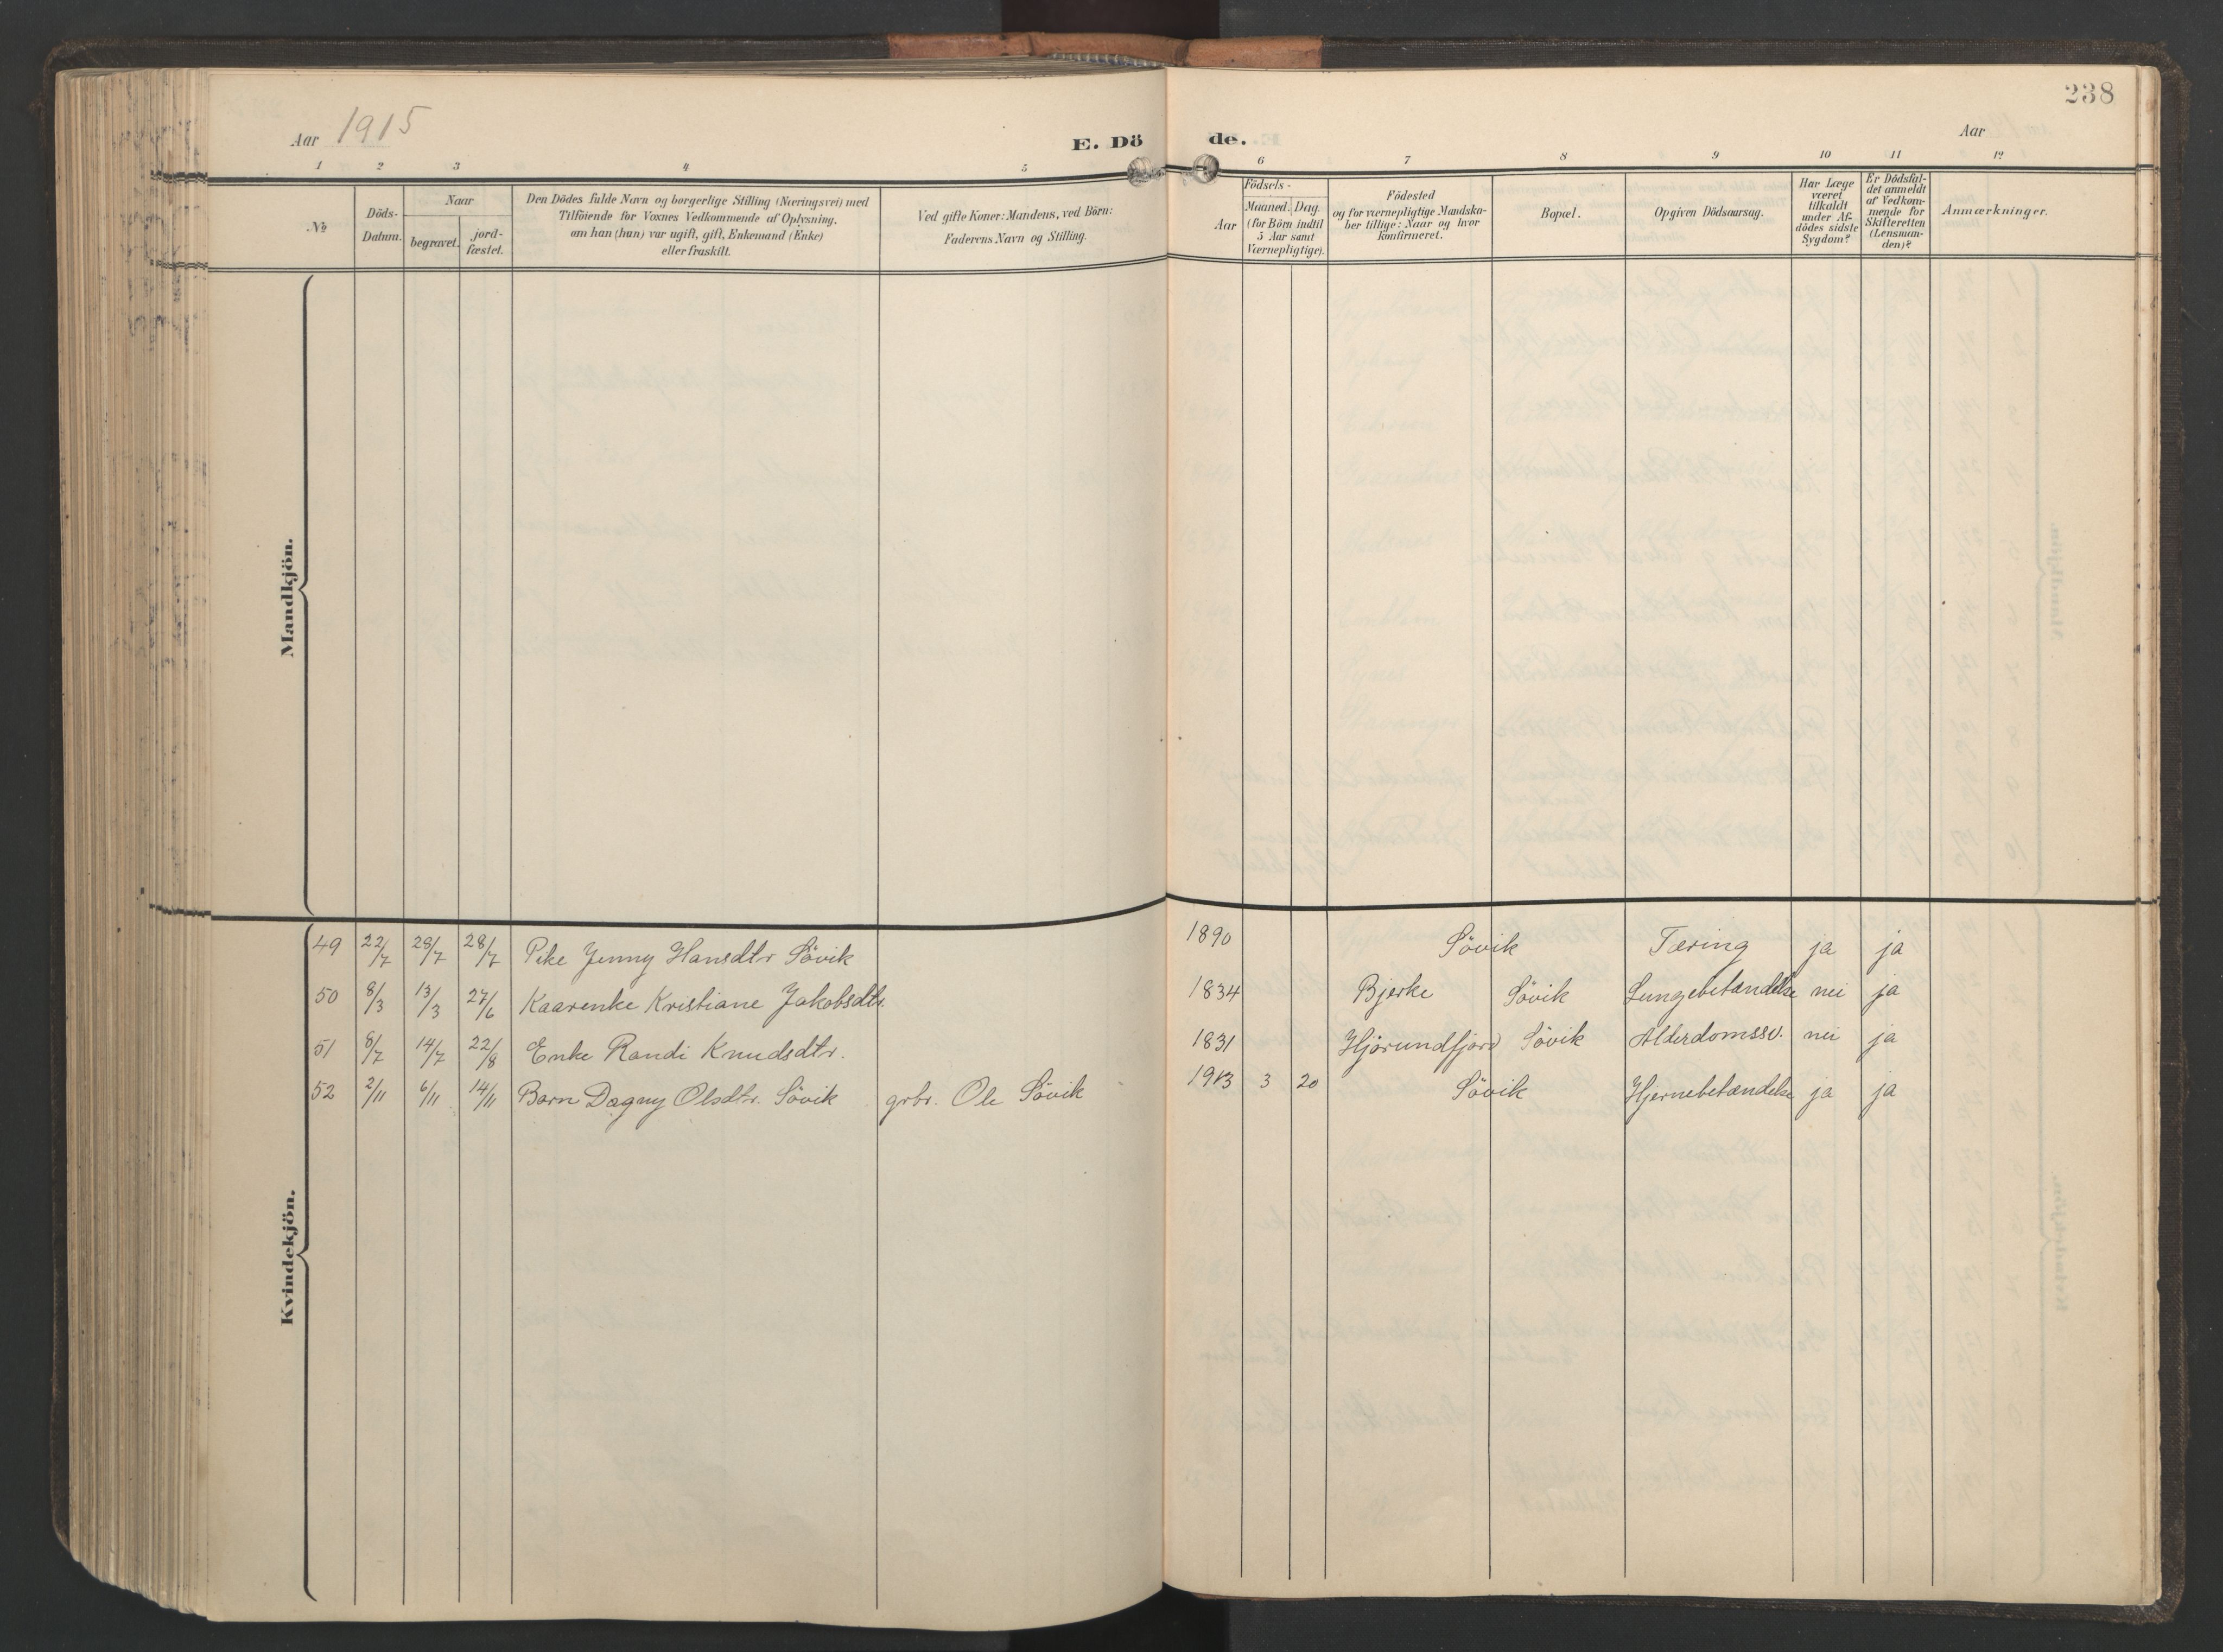 238
Aar 1915
E. Dö de.
Aar
1 2 3 4 5 6 7 8 9 10 11 12
№
Döds-
Datum.
Naar
begravet.
jord-
fæstet.
Den Dödes fulde Navn og borgerlige Stilling (Næringsvei) med
Tilföiende for Voxnes Vedkommende af Oplysning,
om han (hun) var ugift, gift, Enkemand (Enke)
eller fraskilt.
Ved gifte Koner: Mandens, ved Börn:
Faderens Navn og Stilling.
Födsels-
Aar
Maaned. Dag.
(for Börn indtil
5 Aar samt
Værnepligtige).
Födested
og for værnepligtige Mandska-
ber tillige: Naar og hvor
konfirmeret.
Bopæl.
Opgiven Dödsaarsag.
Har Læge
været
tilkaldt
under Af-
dödes sidste
Sygdom?
Er Dödsfal-
det anmeldt
af Vedkom-
mende for
Skifteretten
(Lensman-
den)?
Anmærkninger.
Mandkjön.
Kvindekjön.
49 22/7 28/7 28/7 Pike Jenny Hansdtr Sövik 1890 Sövik Tæring ja ja
50 8/3 13/3 27/6 Kaarenke Kristiane Jakobsdtr. 1834 Bjerke Sövik Lungebetændelse nei ja
51 8/7 14/7 22/8 Enke Randi Knudsdtr. 1831 Hjörundfjord Sövik Alderdomssv. nei ja
52 2/11 6/11 14/11 Barn Dagny Olsdtr. Sövik grbr. Ole Sövik 1913 3 20 Sövik Hjernebetændelse ja ja